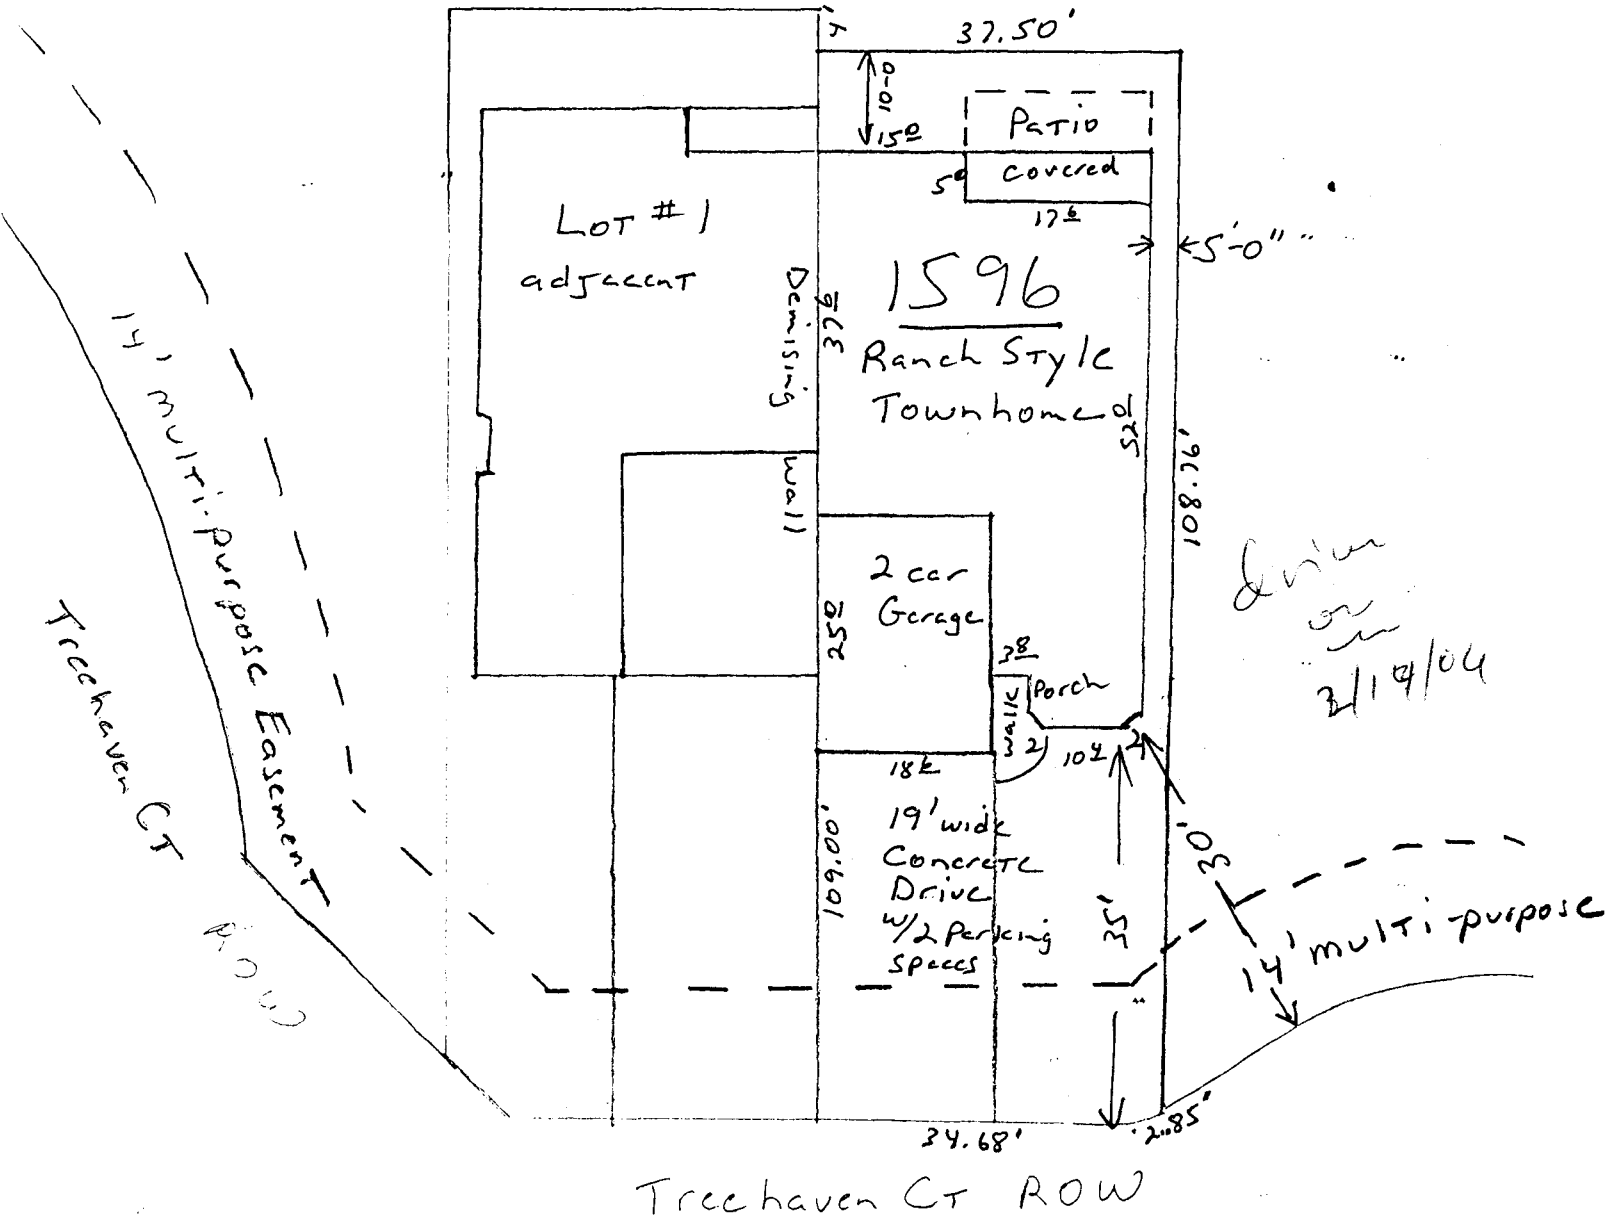 4'
37.50'
10-0
15º
Patio
covered
5º
17 6
5'-0"
Lot # 1
adjacent
1596
Ranch Style
Townhome
Demising
Wall
37 6
52 0
108.76'
2 car
Garage
25 0
3 8
Porch
Walk
2
10 4
2
18 6
19' wide
Concrete
Drive
w/2 Parking
spaces
109.00'
35'
30'
14' multi-purpose
14' multi-purpose Easement
Treehaven CT
ROW
34.68'
2.85'
Treehaven CT ROW